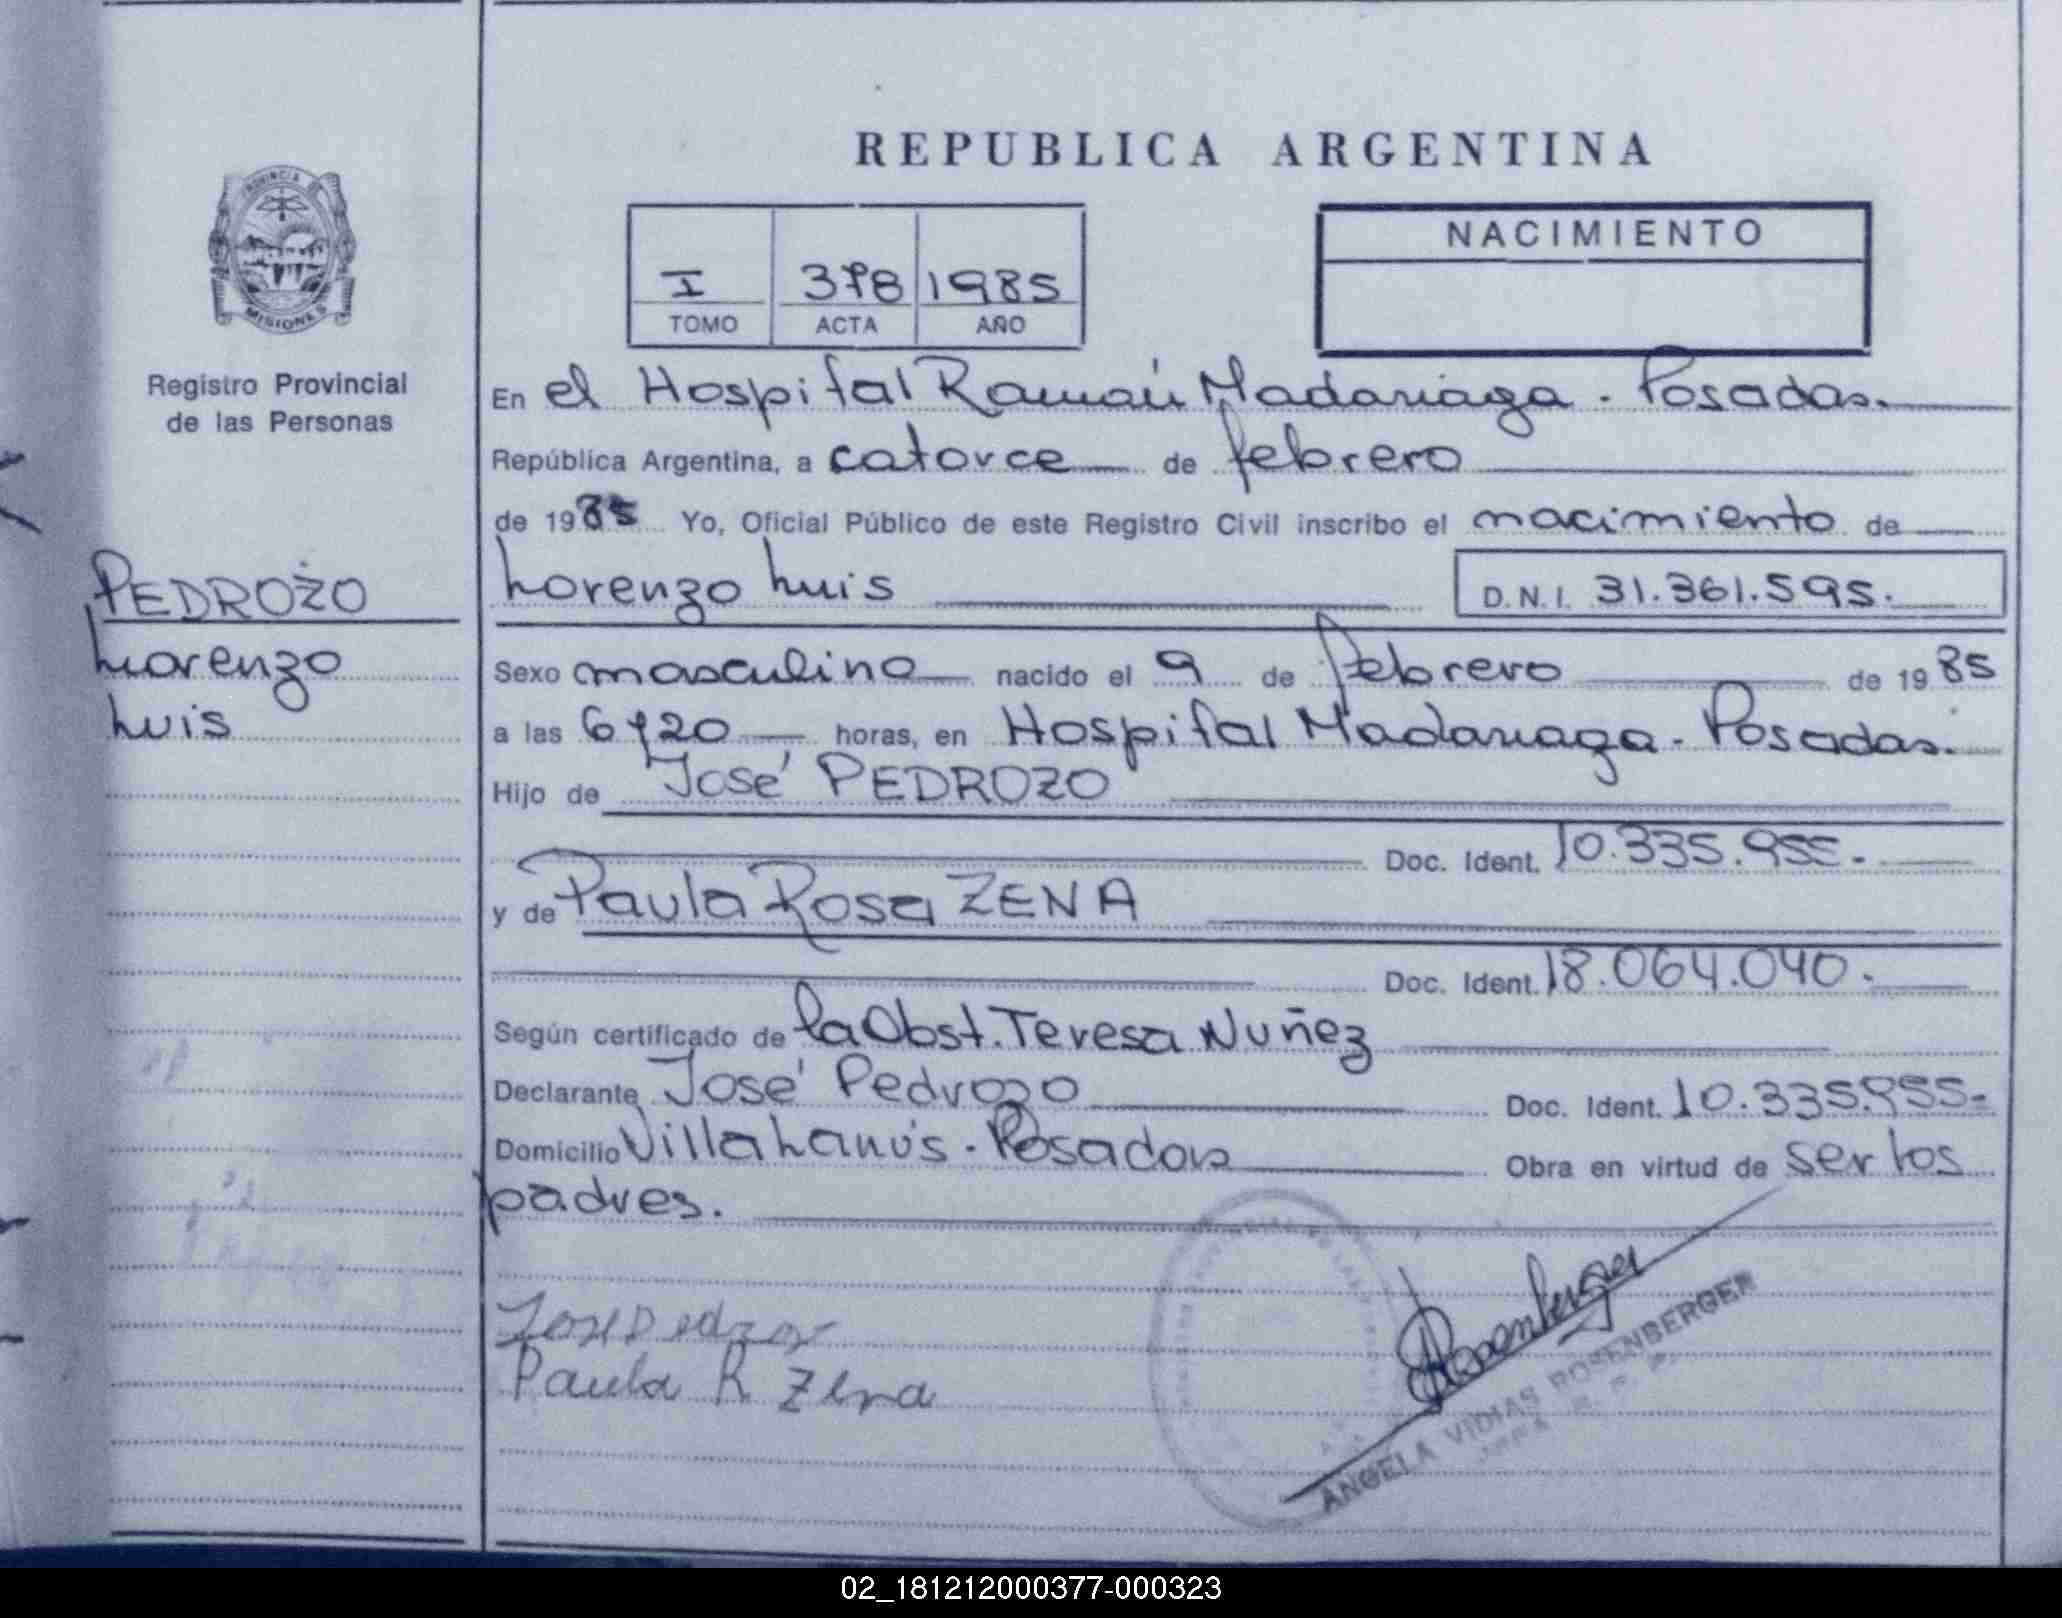 REPUBLICA ARGENTINA
PROVINCIA DE
MISIONES
Registro Provincial
de las Personas
I 378 1985
TOMO ACTA AÑO
NACIMIENTO
En el Hospital Ramón Madariaga - Posadas.
República Argentina, a catorce de febrero
de 1985 Yo, Oficial Público de este Registro Civil inscribo el nacimiento de
PEDROZO
Lorenzo
Luis
Lorenzo Luis D.N.I. 31.361.595.
Sexo masculino nacido el 9 de febrero de 1985
a las 6y20 horas, en Hospital Madariaga - Posadas.
Hijo de José PEDROZO
Doc. Ident. 10.335.955.
y de Paula Rosa ZENA
Doc. Ident. 18.064.040.
Según certificado de la Obst. Teresa Nuñez
Declarante José Pedrozo Doc. Ident. 10.335.955.
Domicilio Villa Lanús - Posadas Obra en virtud de ser los
padres.
Paula R Zena
Rosenberger
ANGELA VIDIAS ROSENBERGER
02_181212000377-000323